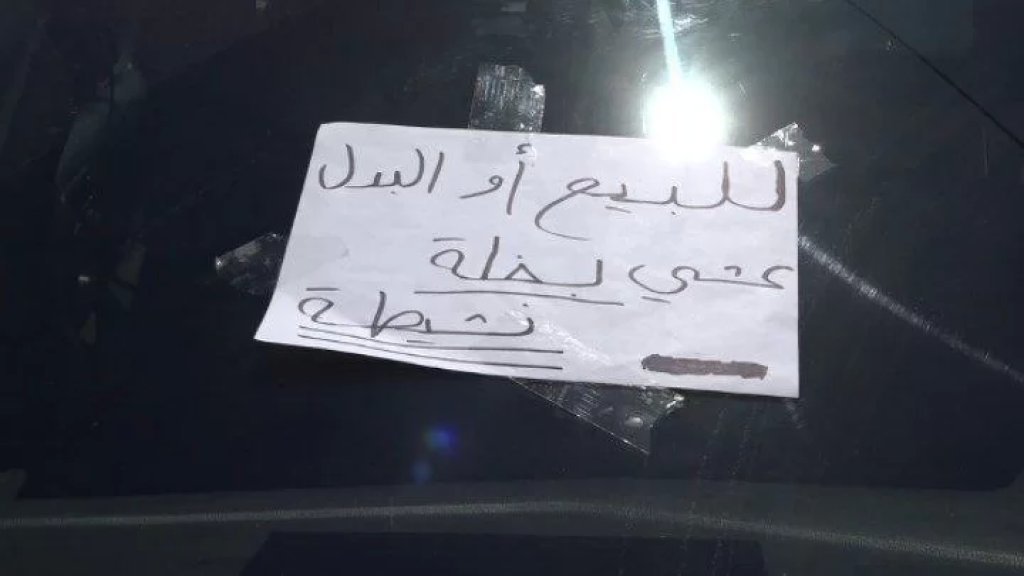 للبيع أو البدل
عشي بغلة
نشيطة